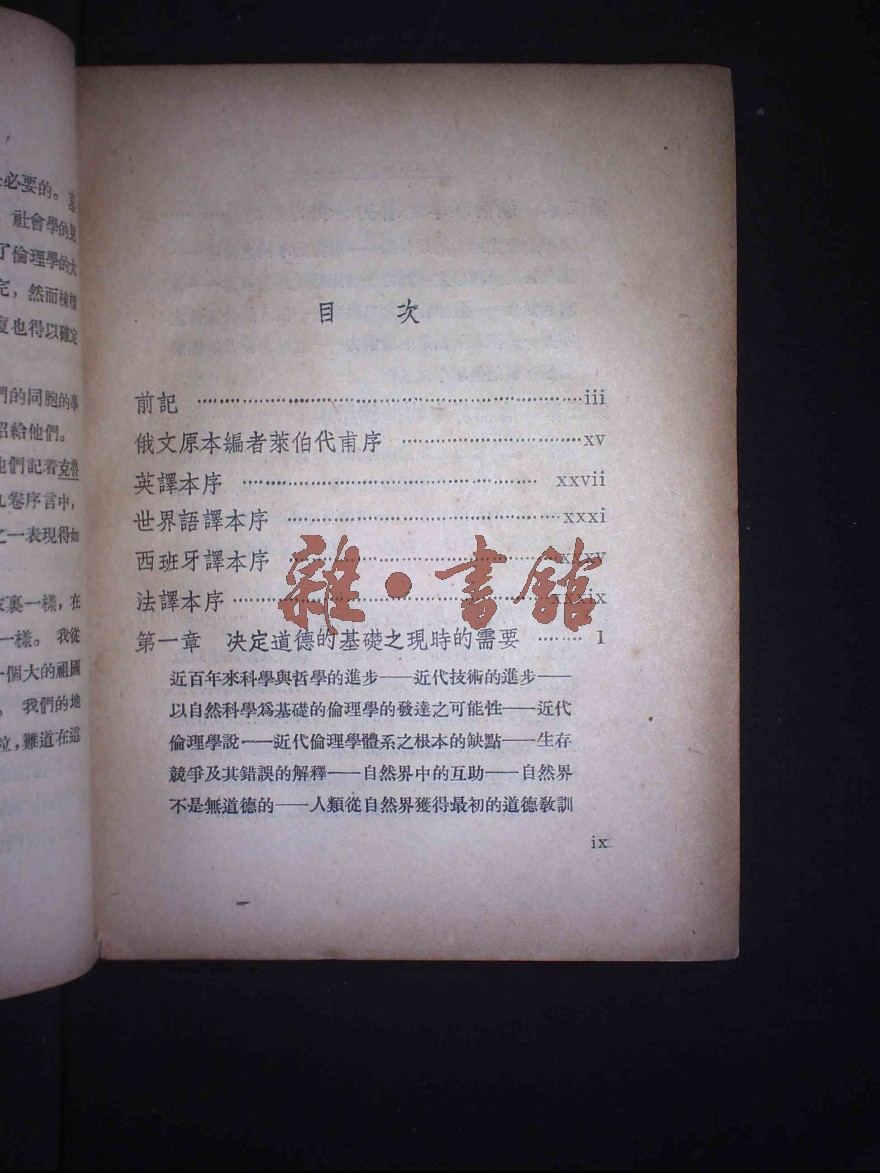 必要的。
社會學的見
了倫理學的大
完，然而棟樑
度也得以確定
們的同胞的事
紹給他們。
他們記着克魯
九卷序言中，
之一表現得如
家裏一樣，在
一樣。 我從
一個大的祖國
。 我們的地
位，難道在這
目 次
前記 ……………………………………… iii
俄文原本編者萊伯代甫序 ………………… xv
英譯本序 ……………………………… xxvii
世界語譯本序 ………………………… xxxi
西班牙譯本序 ………………………… xxxv
法譯本序 ……………………………… xxxix
第一章 决定道德的基礎之現時的需要 …… 1
近百年來科學與哲學的進步——近代技術的進步——
以自然科學爲基礎的倫理學的發達之可能性——近代
倫理學說——近代倫理學體系之根本的缺點——生存
競爭及其錯誤的解釋——自然界中的互助——自然界
不是無道德的——人類從自然界獲得最初的道德教訓
ix
雜·書館